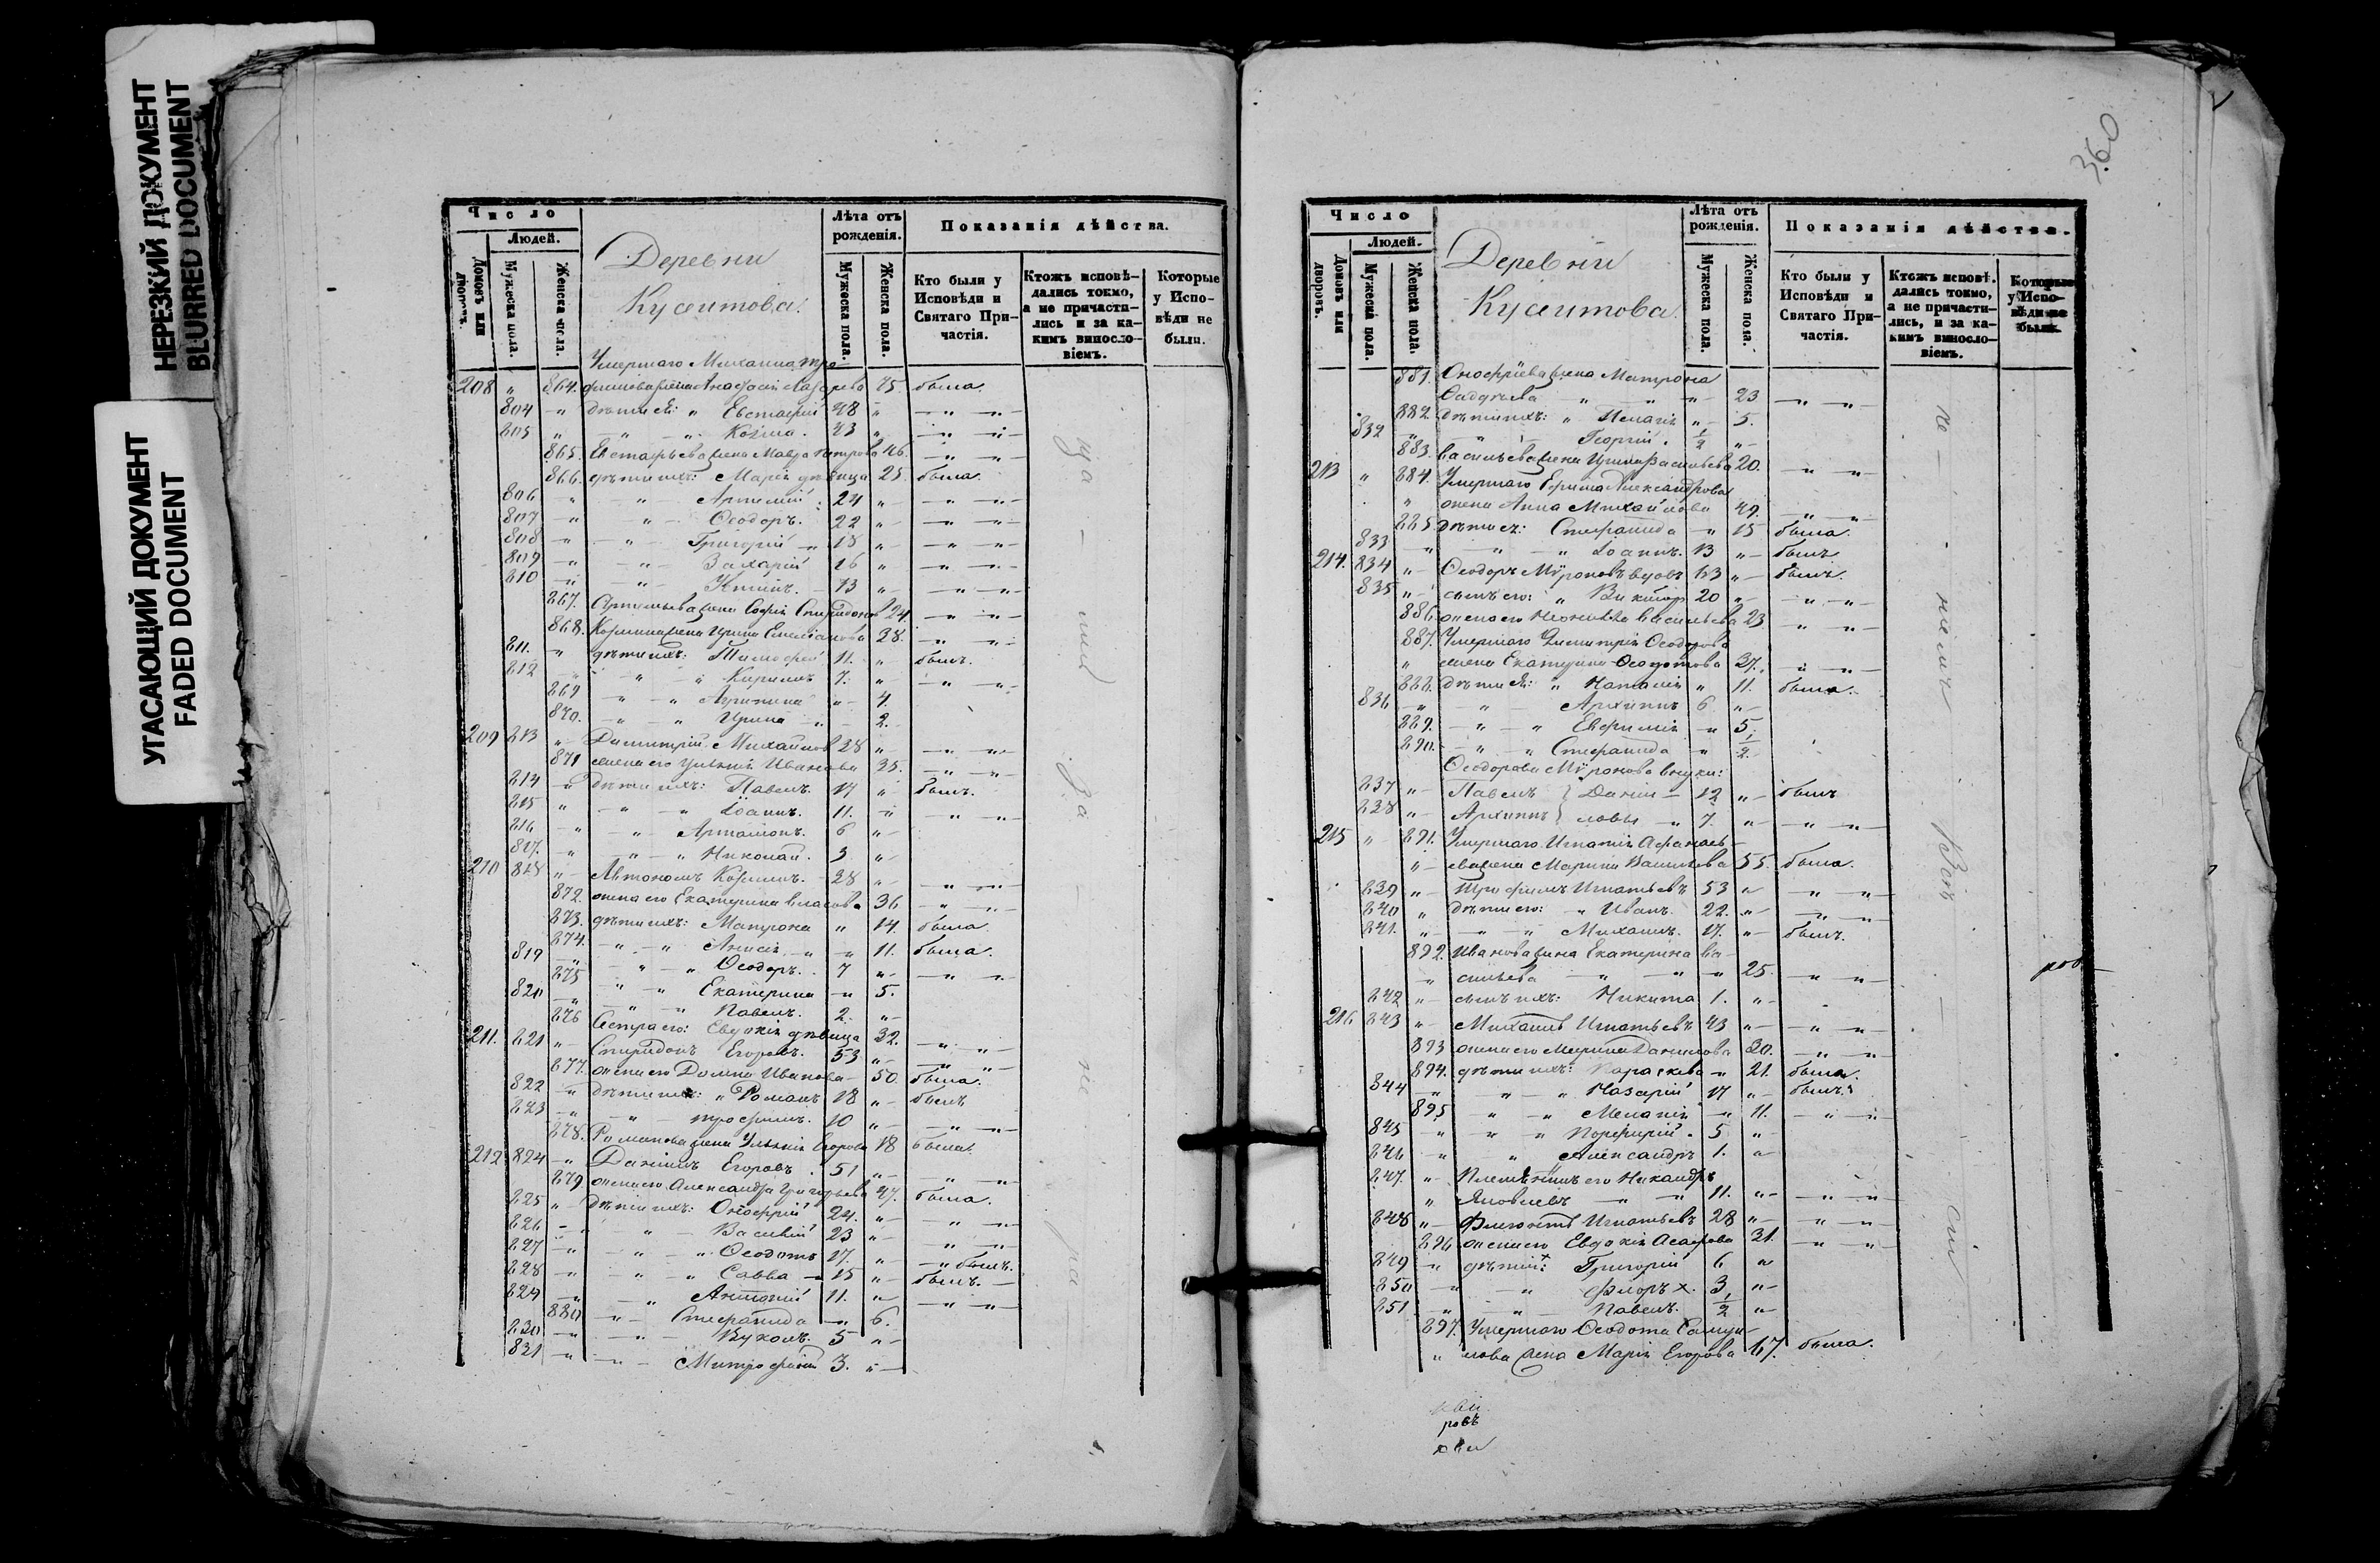 НЕРЕЗКИЙ ДОКУМЕНТ
BLURRED DOCUMENT
УГАСАЮЩИЙ ДОКУМЕНТ
FADED DOCUMENT
Число
Людей.
Домовъ или дворовъ.
Мужеска пола.
Женска пола.
Деревни
Кусеитова.
Лѣта отъ рожденія.
Мужеска пола.
Женска пола.
Показанія дѣйства.
Кто были у Исповѣди и Святаго Причастія.
Ктожъ исповѣдались токмо, а не причастились и за какимъ винословіемъ.
Которые у Исповѣди не были.
Умершаго Михаила Тро-
208 " 864. фимова жена Анастасія Лазарева 75. была.
804 " дѣти ея: " Евстафій 48 "
805 " " " Козма. 43 "
865. Евстафьева жена Мавра Петрова 46.
866. дѣти ихъ: Марія дѣвица 25. была.
806 " " Артемій 24 "
807 " " Ѳеодоръ. 22 "
808 " " Григорій 18 "
809 " " Захарій 16 "
810 " " 13 "
867. Артемьева жена Софія Спиридонова 24.
868. Козмина жена Ирина Емеліанова 38.
811. " дѣти ихъ: Тимофей 11. " былъ.
812 " " Кирилъ 7. "
869 " " 4.
870. " " Ирина " 2.
209 813 " Димитрій Михайловъ 38 "
871 жена его Ульянія Иванова 35.
814 " дѣти ихъ: Павелъ. 14 " былъ.
815 " " " Іоаннъ. 11. "
816 " " Артамонъ. 6 "
817. " " Николай. 3 "
210 818 " Автономъ Козминъ. 38 "
872. жена его Екатерина Власова 36
873. дѣти ихъ: Матрона " 14. была.
874. " " Анисія " 11. была.
819 " " Ѳеодоръ. 7 "
875 " " Екатерина " 5.
820 " " Павелъ. 2. "
876 Сестра его: Евдокія дѣвица 32.
211. 821 " Спиридонъ Егоровъ. 53 "
877. жена его Домна Иванова 50. была.
822 " дѣти ихъ: " Романъ 18 " былъ
823 " " Трофимъ. 10 "
878. Романова жена Ульянія Егорова 18 была.
212 824 " Даніилъ Егоровъ. 51 "
879 жена его Александра Григорьева 47. была.
825 " дѣти ихъ: Онофрій 24. "
826 " " Василій 23 "
827 " " Ѳеодотъ 17. " былъ.
828 " " Савва 15 " былъ.
829 " " Антоній 11. "
880 " Стефанида " 6.
830 " " Вуколъ. 5 "
831 " " Митрофанъ 3. "
360
Число
Людей.
Домовъ или дворовъ.
Мужеска пола.
Женска пола.
Деревни
Кусеитова.
Лѣта отъ рожденія.
Мужеска пола.
Женска пола.
Показанія дѣйства.
Кто были у Исповѣди и Святаго Причастія.
Ктожъ исповѣдались токмо, а не причастились, и за какимъ винословіемъ.
Которые у Исповѣди не были.
881. Онофріева жена Матрона
" " 23
882. дѣти ихъ: " Пелагія " 5.
832 " " Георгій. 1/2 "
883. Васильева жена Ирина Васильева 20.
213 " 884. Умершаго Ефима Александрова
" жена Анна Михайлова 49.
885. дѣти ея: Стефанида " 15 была.
833 " " " Іоаннъ. 13 " былъ
214. 834 " Ѳеодоръ Мѵроновъ вдовъ 63 " былъ.
835 " сынъ его: " Викторъ 20 "
886. жена его Неонила Васильева 23
887. Умершаго Димитрія Ѳеодорова
" жена Екатерина Ѳеодотова 37.
888. дѣти ея: " Наталія " 11. была.
836 " " Архиппъ 6 "
889. " " Евфимія " 5.
890. " " Стефанида " 1/2
Ѳеодорова Мѵронова внуки:
837 " Павелъ } Даніи- 12 " былъ
838 " Архиппъ } ловы " 7. "
215 " 891. Умершаго Игнатія Афанась-
" ева жена Марина Васильева 55. была.
839 " Трофимъ Игнатьевъ 53 "
840 " дѣти его: " Иванъ. 22. "
841. " " " Михаилъ. 17. " былъ.
892. Иванова жена Екатерина Ва-
" сильева " 25.
842 " сынъ ихъ: Никита 1. "
216 843 " Михаилъ Игнатьевъ 43 "
893 жена его Марина Данилова 30.
894. дѣти ихъ: Параскева " 21. была.
844 " " Назарій 17 " былъ.
895 " " Меланія " 11.
845 " " Порфирій. 5 "
846 " " Александръ 1. "
847. " Племянникъ его Никандръ
" Яковлевъ 11. "
848 " Флегонтъ Игнатьевъ 28 "
896 жена его Евдокія Асафова 31.
849 " дѣти: Григорій 6 "
850 " " Флоръ х. 3 "
851. " " Павелъ. 1/2 "
897. Умершаго Ѳеодота Самуи-
" лова жена Марія Егорова 67. была.
ровъ